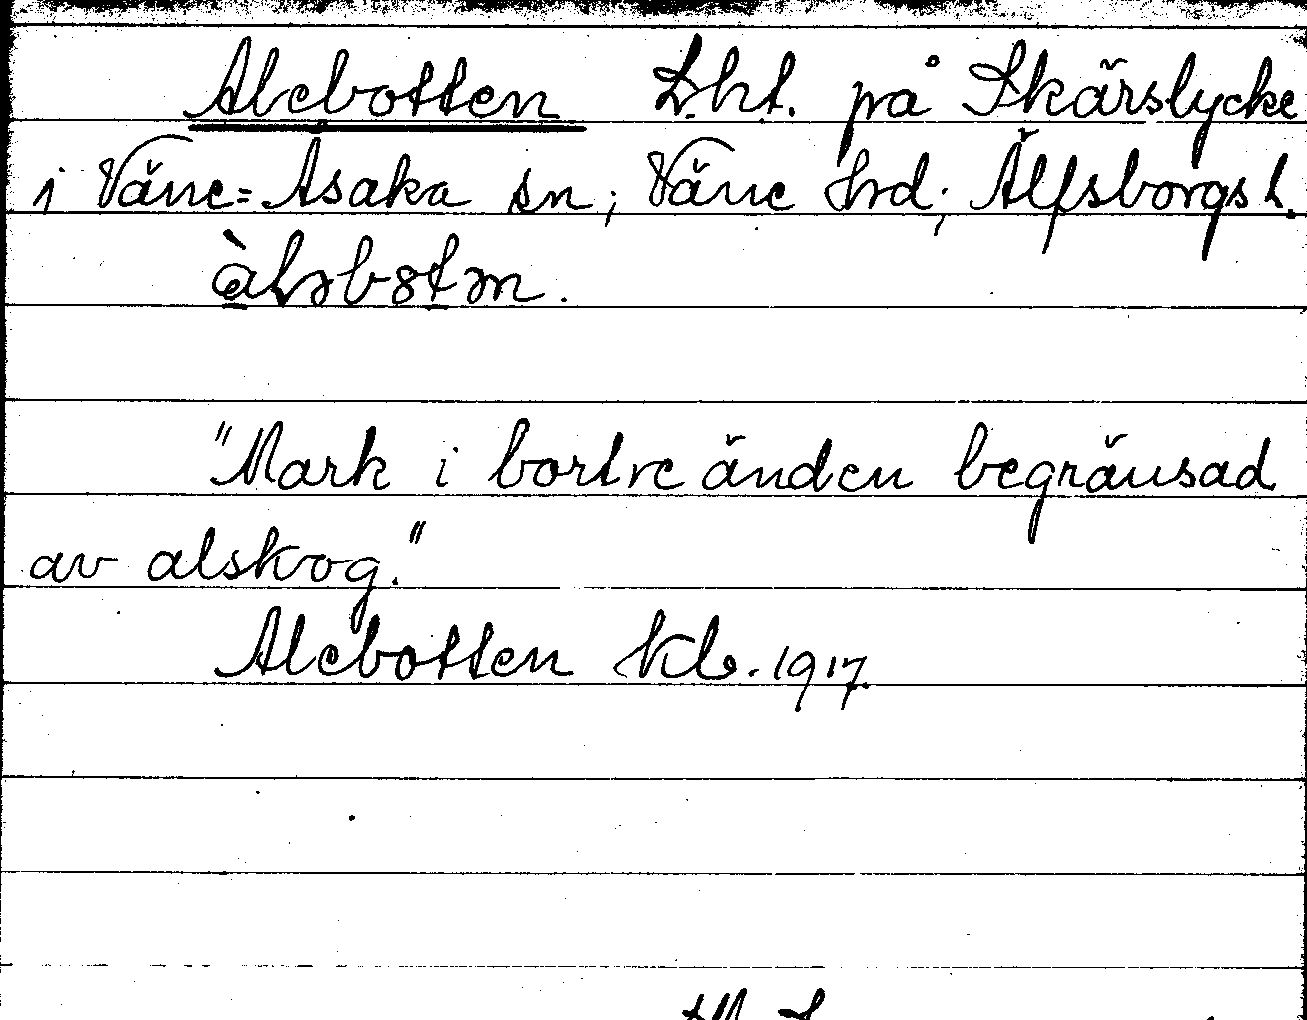 Alebotten Lht. på Skärslycke
i Väne=Åsaka sn; Väne hrd; Älfsborgs l.
"Mark i bortre änden begränsad
av alskog."
Alebotten Kb. 1917.